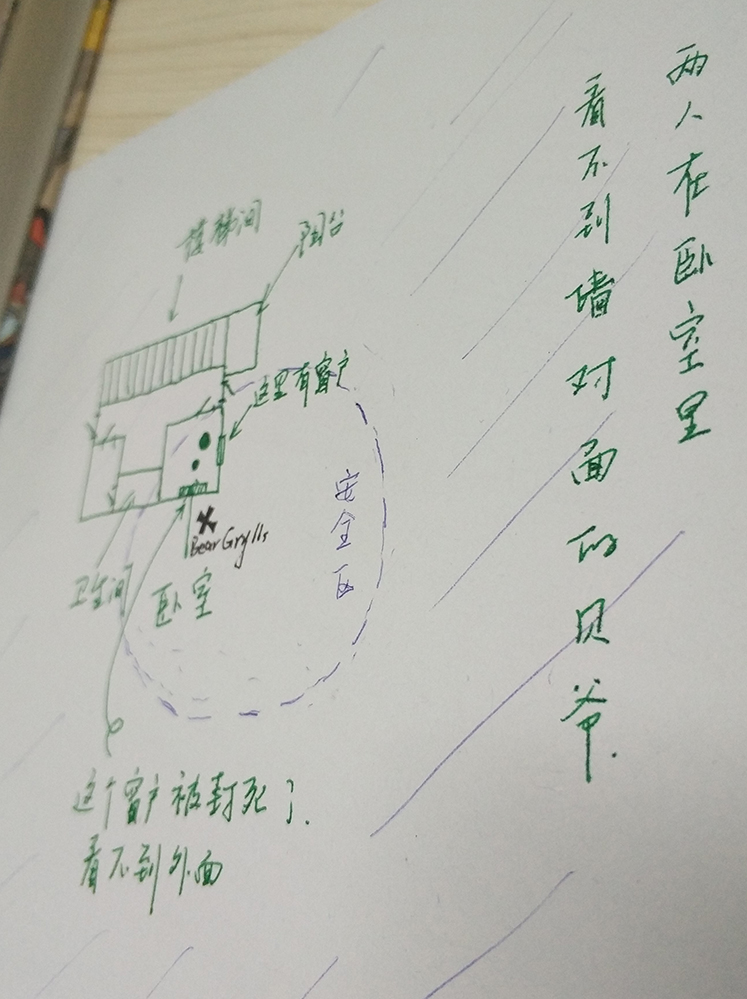 两人在卧室里
看不到墙对面的贝爷.
楼梯间
阳台
这里有窗户
安全区
Bear Grylls
卫生间
卧室
这个窗户被封死了.
看不到外面